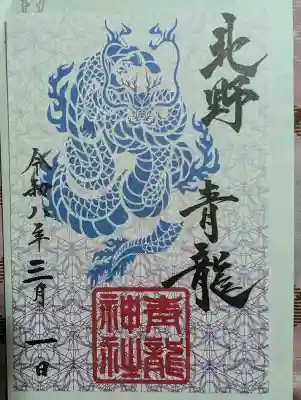 北野
青龍
令和八年三月一日
青龍神社